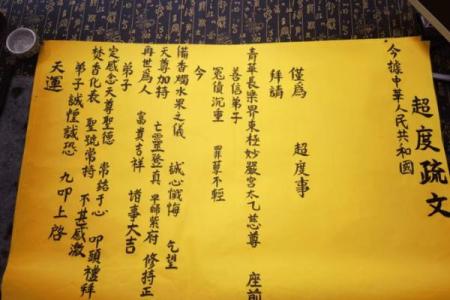 超度疏文
今據中華人民共和國
僅為 超度事
拜請
青華長樂界東極妙嚴宮太乙慈尊 座前
善信弟子
冤債沉重 罪孽不輕
今
備香燭水果之儀 誠心懺悔 乞望
天尊加持 亡靈登真 早歸紫府 修持正
再世為人 富貴吉祥 諸事大吉
弟子
定感念天尊聖德 常銘于心 叩頭禮拜
焚香化表 聖號常持 不甚感激
弟子誠惶誠恐 九叩上啓
天運